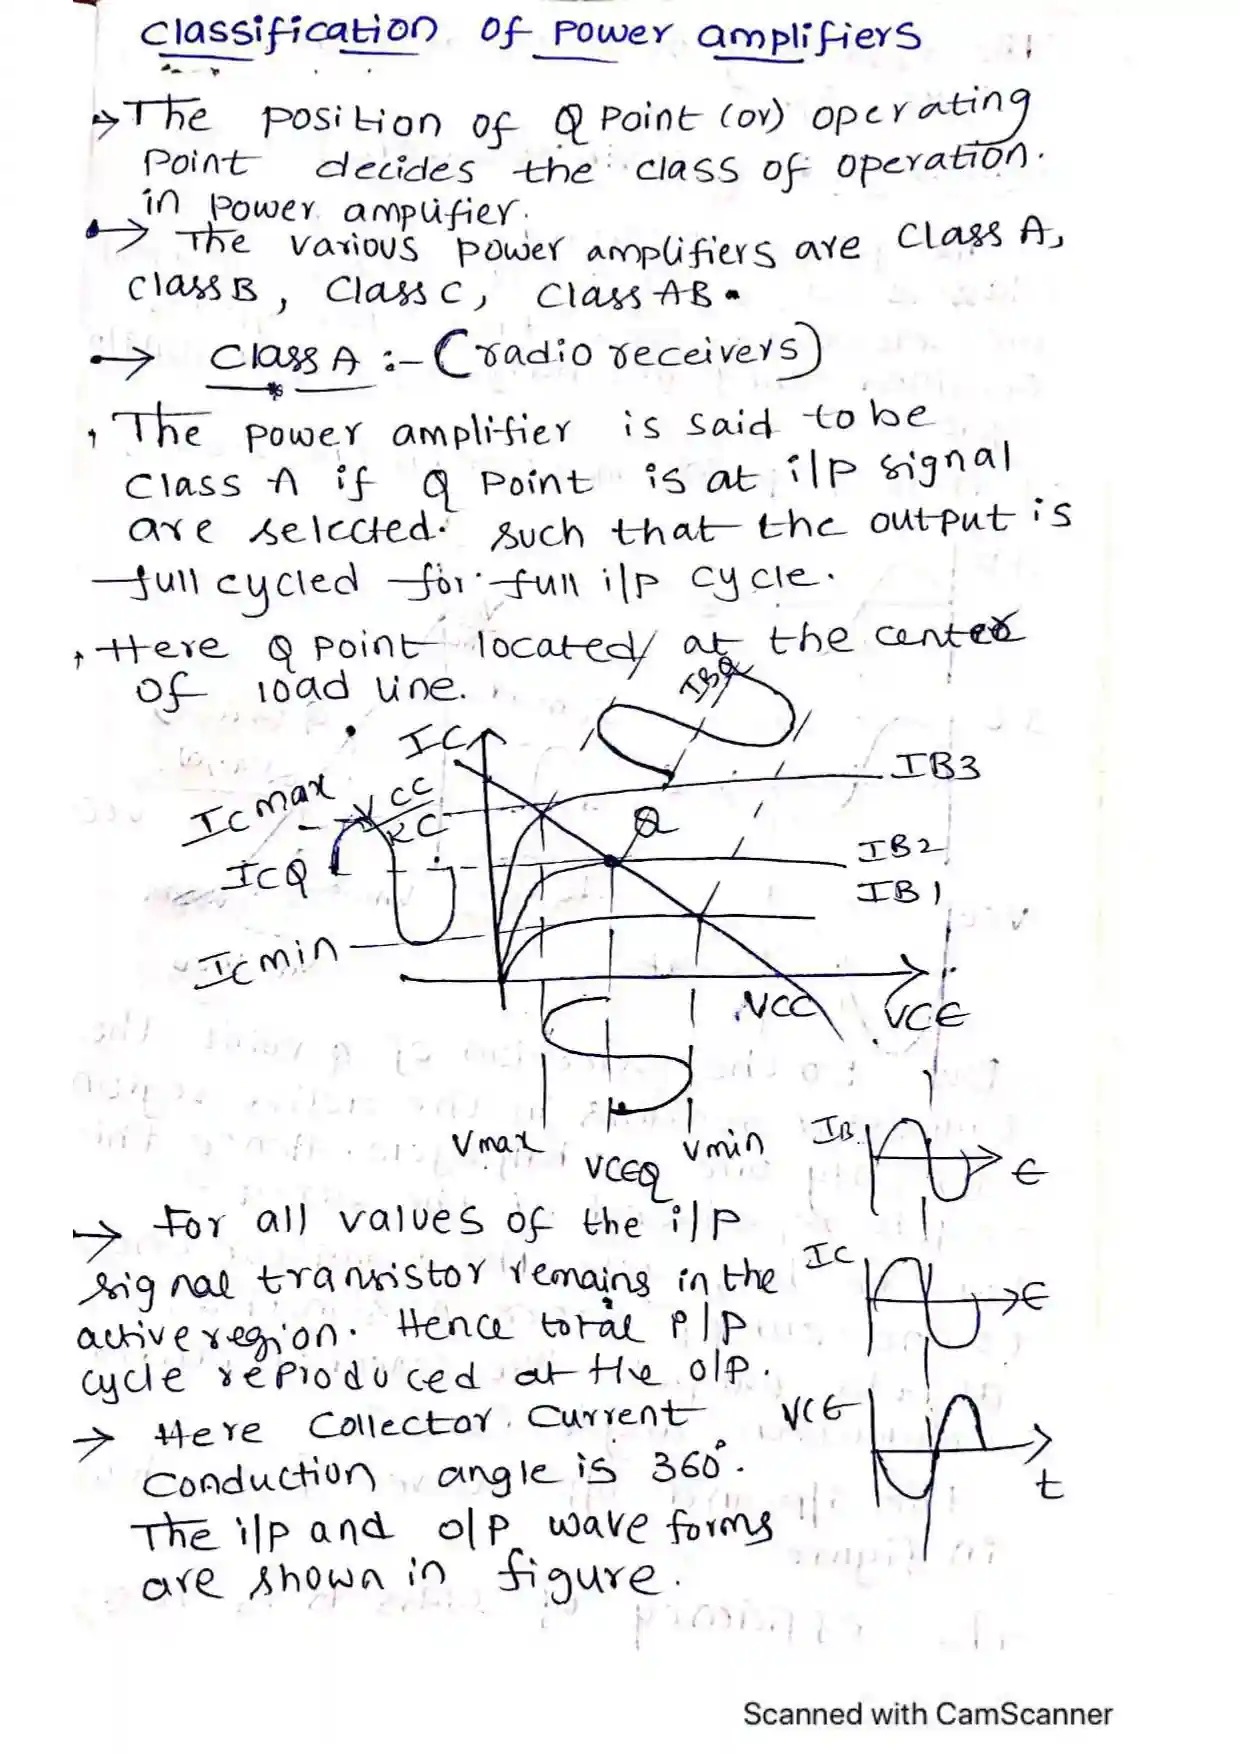 Classification of power amplifiers
→ The position of Q point (or) operating
point decides the class of operation.
in power amplifier.
→ The various power amplifiers are class A,
class B, class C, class AB.
→ Class A :- (radio receivers)
The power amplifier is said to be
class A if Q point is at i/p signal
are selected. such that the output is
full cycled for full i/p cycle.
Here Q point located at the center
of load line.
IBQ
IC
IB3
IC max
VCC
RC
Q
IB2
ICQ
IB1
IC min
VCC
VCE
Vmax
VCEQ
Vmin
IB
t
→ For all values of the i/p
signal transistor remains in the
active region. Hence total i/p
cycle reproduced at the o/p.
IC
t
→ Here collector current
conduction angle is 360°.
The i/p and o/p wave forms
are shown in figure.
VCE
t
Scanned with CamScanner